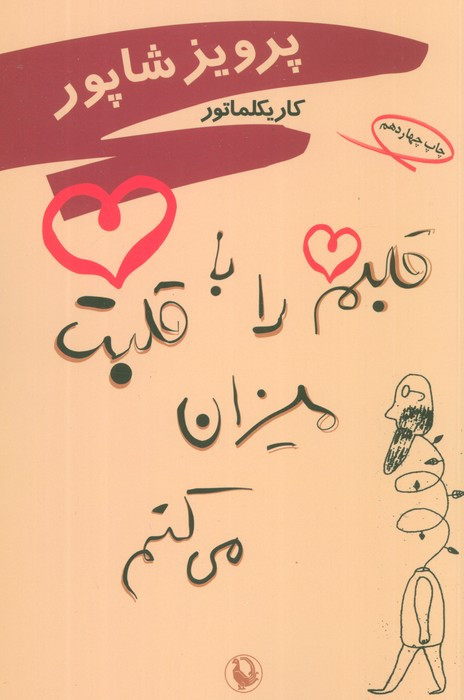 پرویز شاپور
کاریکلماتور
چاپ چهاردهم
قلبم را با قلبت
میزان
می‌کنم